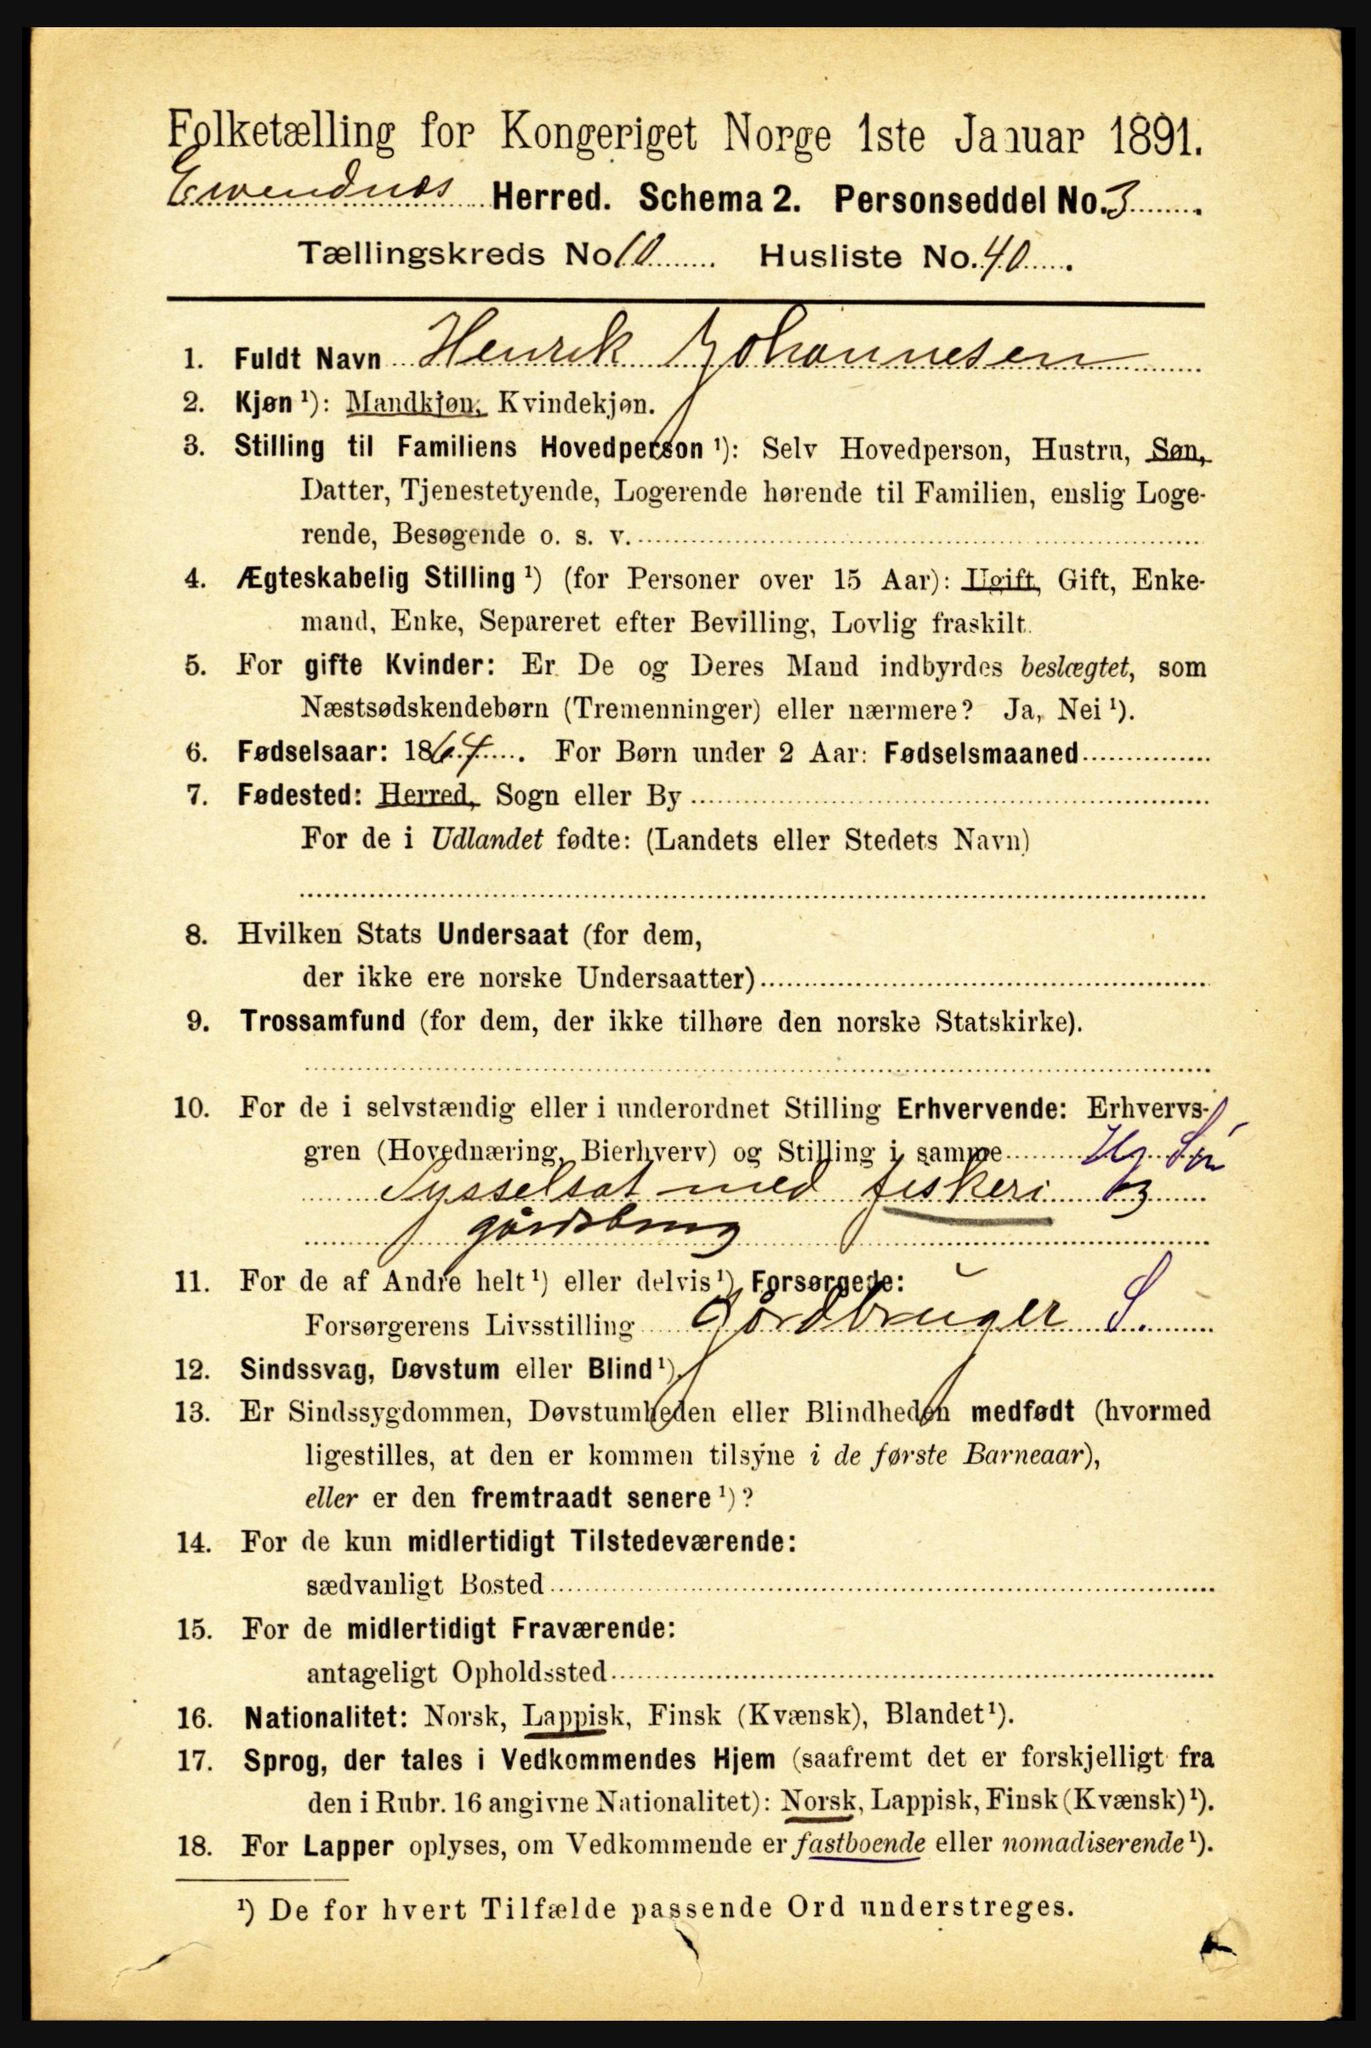 Folketælling for Kongeriget Norge 1ste Januar 1891.
Evendnæs Herred. Schema 2. Personseddel No. 3
Tællingskreds No 10 Husliste No. 40
1. Fuldt Navn Henrik Johannesen
2. Kjøn ¹): Mandkjøn, Kvindekjøn.
3. Stilling til Familiens Hovedperson ¹): Selv Hovedperson, Hustru, Søn,
Datter, Tjenestetyende, Logerende hørende til Familien, enslig Loge-
rende, Besøgende o. s. v.
4. Ægteskabelig Stilling ¹) (for Personer over 15 Aar): Ugift, Gift, Enke-
mand, Enke, Separeret efter Bevilling, Lovlig fraskilt.
5. For gifte Kvinder: Er De og Deres Mand indbyrdes beslægtet, som
Næstsødskendebørn (Tremenninger) eller nærmere? Ja, Nei ¹).
6. Fødselsaar: 1864. For Børn under 2 Aar: Fødselsmaaned
7. Fødested: Herred, Sogn eller By
For de i Udlandet fødte: (Landets eller Stedets Navn)
8. Hvilken Stats Undersaat (for dem,
der ikke ere norske Undersaatter)
9. Trossamfund (for dem, der ikke tilhøre den norske Statskirke).
10. For de i selvstændig eller i underordnet Stilling Erhvervende: Erhvervs-
gren (Hovednæring, Bierhverv) og Stilling i samme Hg Søn
Sysselsat med fiskeri og
gårdsbrug
11. For de af Andre helt ¹) eller delvis ¹) Forsørgede:
Forsørgerens Livsstilling Gårdbruger S.
12. Sindssvag, Døvstum eller Blind ¹).
13. Er Sindssygdommen, Døvstumheden eller Blindheden medfødt (hvormed
ligestilles, at den er kommen tilsyne i de første Barneaar),
eller er den fremtraadt senere ¹)?
14. For de kun midlertidigt Tilstedeværende:
sædvanligt Bosted
15. For de midlertidigt Fraværende:
antageligt Opholdssted
16. Nationalitet: Norsk, Lappisk, Finsk (Kvænsk), Blandet ¹).
17. Sprog, der tales i Vedkommendes Hjem (saafremt det er forskjelligt fra
den i Rubr. 16 angivne Nationalitet): Norsk, Lappisk, Finsk (Kvænsk) ¹).
18. For Lapper oplyses, om Vedkommende er fastboende eller nomadiserende ¹).
¹) De for hvert Tilfælde passende Ord understreges.